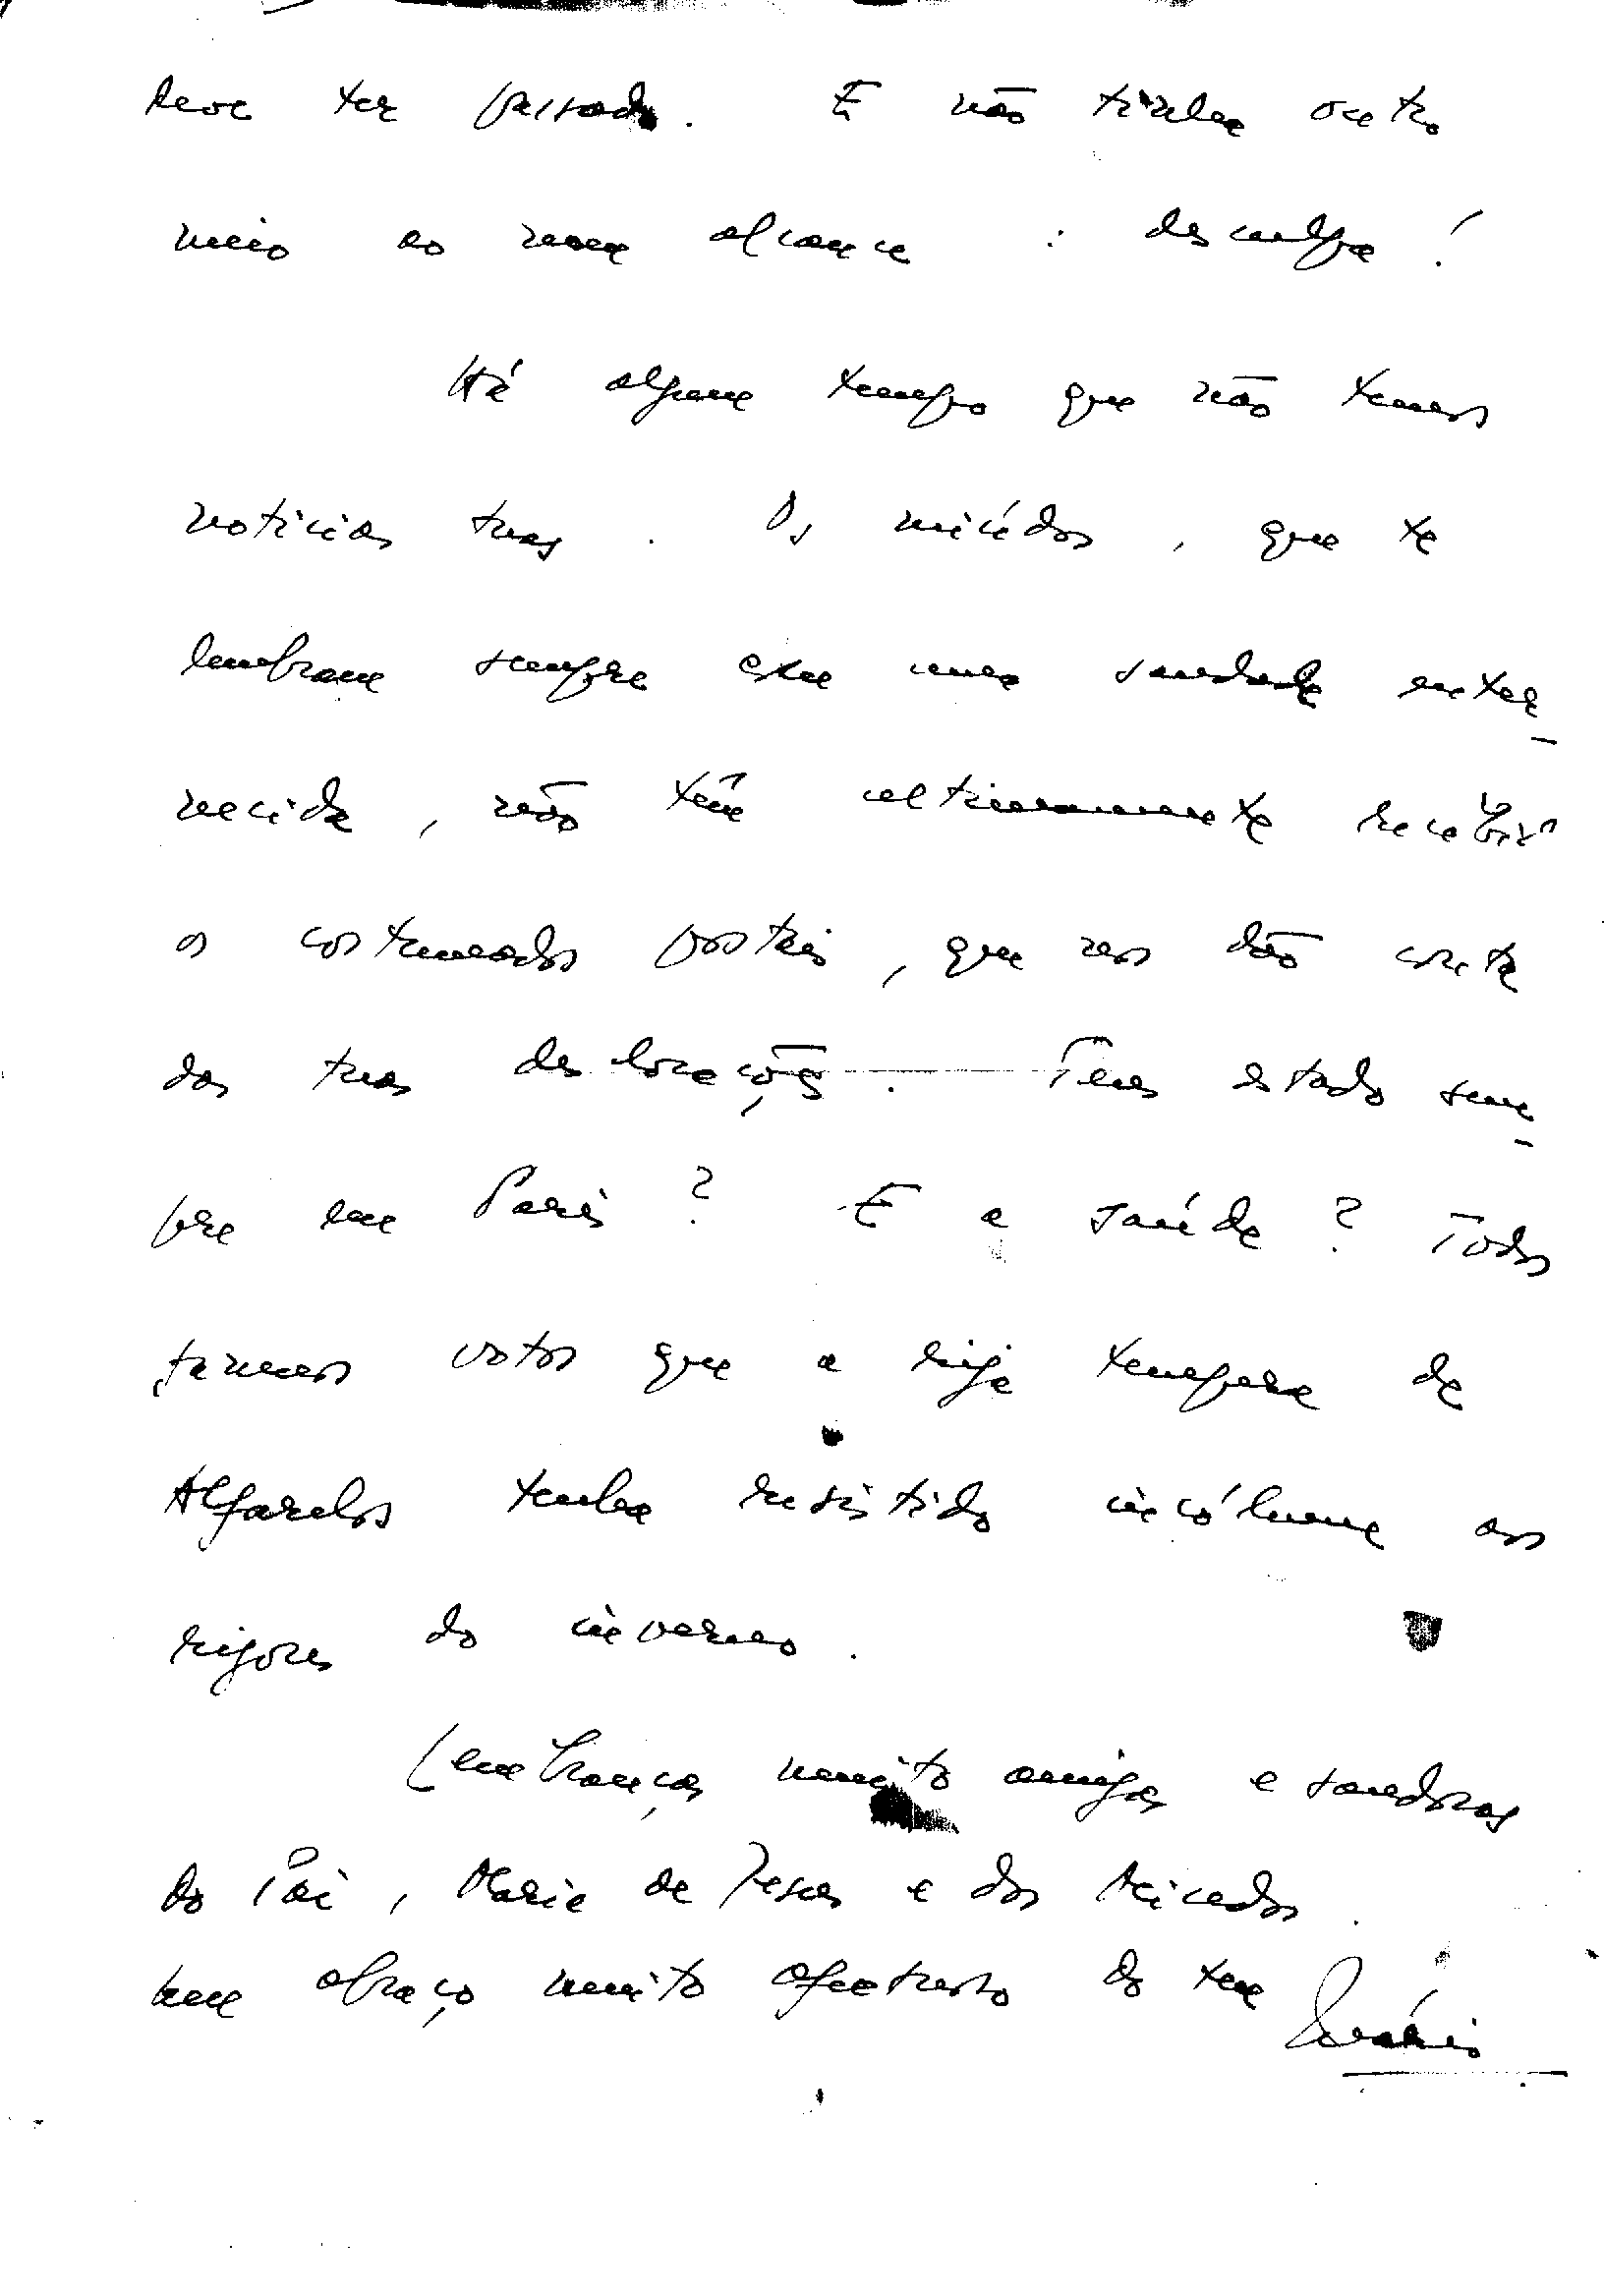 deve ter passado. E não tinha outro
meio ao meu alcance : desculpa!
Há algum tempo que não temos
noticias tuas. Os miúdos, que te
lembram sempre com uma saudade enter-
necida, não têm ultimamente recebido
os costumados postais, que nos dão conta
das tuas deslocações. Tens estado sem-
pre em Paris? E a saúde? Todos
fazemos votos que a rija tempera de
Alfarelos tenha resistido incólume aos
rigores do inverno.
Lembranças muito amigas e saudosas
do Pai, Maria de Jesus e dos miúdos.
Um abraço muito afectuoso do teu